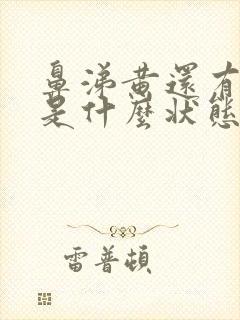 鼻涕黄還有
是什麼狀態
雷普頓